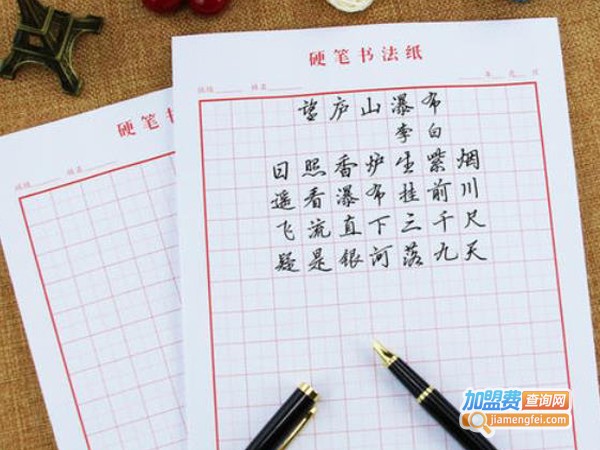 硬笔书法纸
望庐山瀑布
李白
日照香炉生紫烟
遥看瀑布挂前川
飞流直下三千尺
疑是银河落九天
硬笔书
加盟费查询网
jiamengfei.com